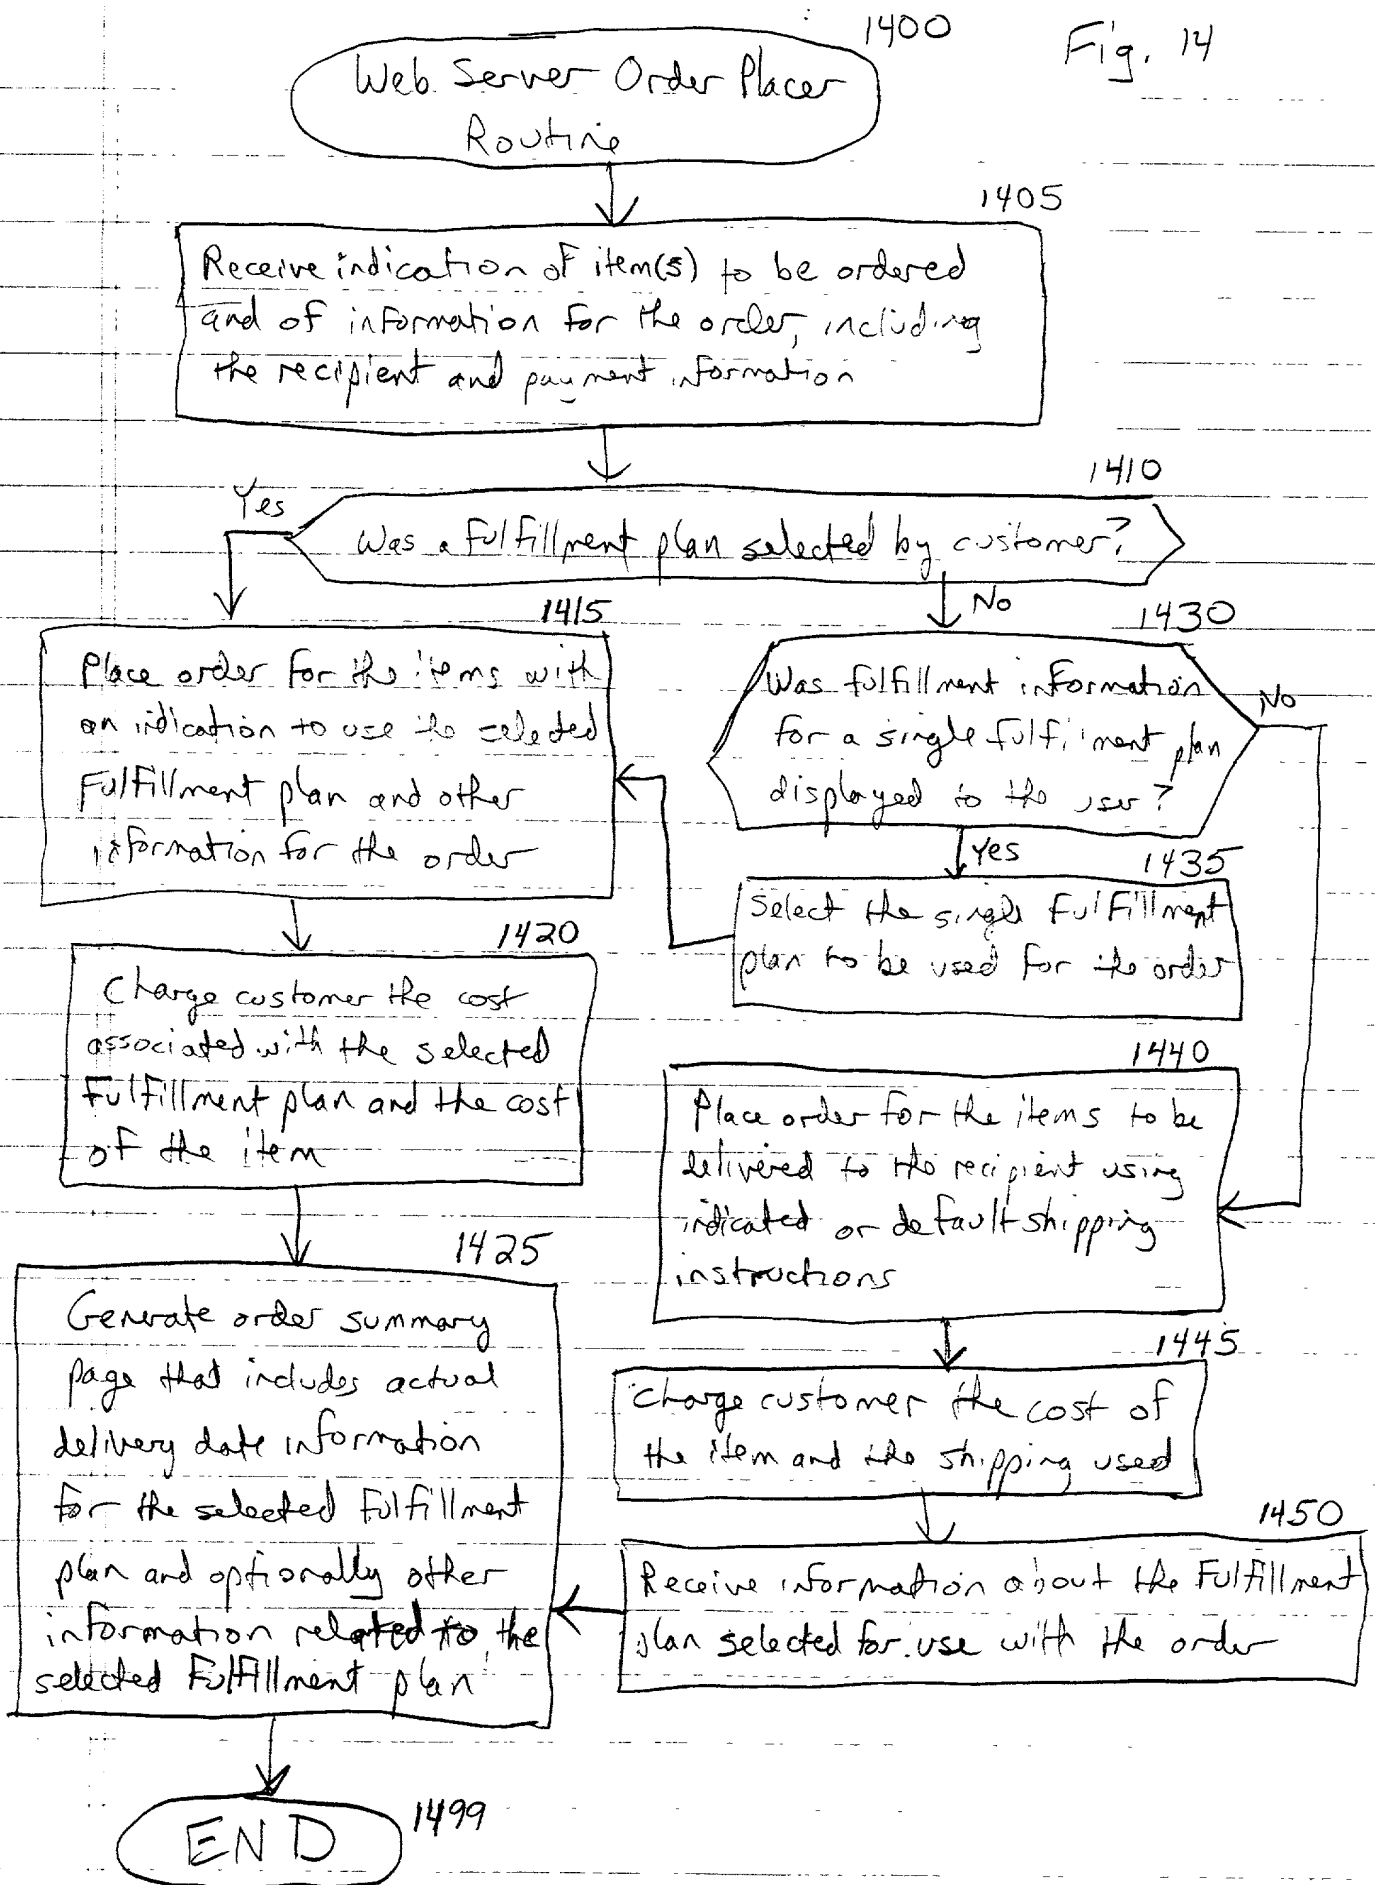 1400
Fig. 14
Web Server Order Placer
Routine
1405
Receive indication of item(s) to be ordered
and of information for the order, including
the recipient and payment information
1410
Yes
Was a fulfillment plan selected by customer?
No
1415
Place order for the items with
an indication to use the selected
Fulfillment plan and other
information for the order
1430
Was fulfillment information
for a single fulfillment plan
displayed to the user?
No
Yes
1435
Select the single Fulfillment
plan to be used for the order
1420
Charge customer the cost
associated with the selected
Fulfillment plan and the cost
of the item
1440
Place order for the items to be
delivered to the recipient using
indicated or default shipping
instructions
1425
Generate order summary
page that includes actual
delivery date information
for the selected Fulfillment
plan and optionally other
information related to the
selected Fulfillment plan
1445
Charge customer the cost of
the item and the shipping used
1450
Receive information about the Fulfillment
plan selected for use with the order
END
1499